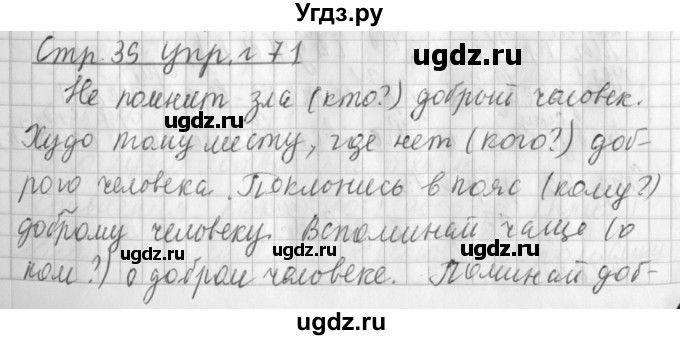 Угдз.ру
Стр. 35 упр. г 71
ugdz.ru
Не помнит зла (кто?) добрый человек.
ugdz.ru
Худо тому месту, где нет (кого?) доб-
ugdz.ru
рого человека. Поклонись в пояс (кому?)
ugdz.ru
доброму человеку. Вспоминай чаще (о
ugdz.ru ugdz.ru
ком?) о добром человеке. Поминай доб-
ugdz.ru